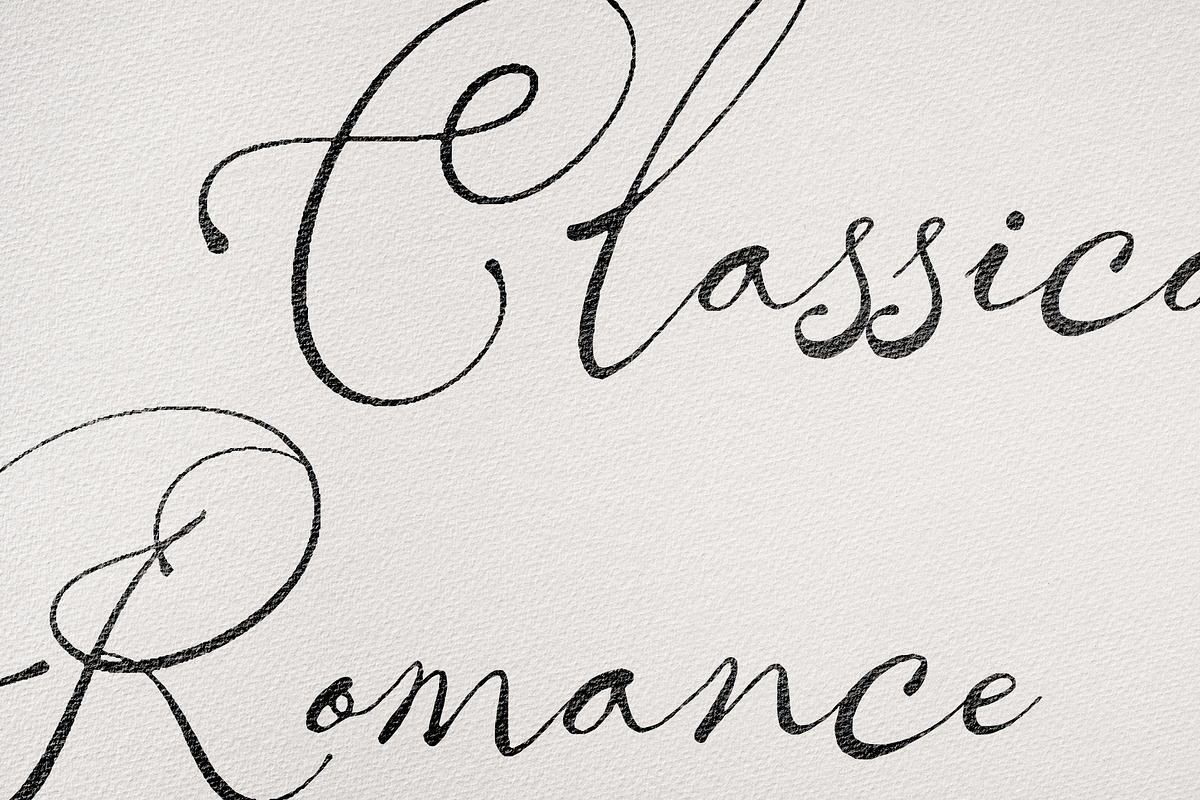 Classica
Romance